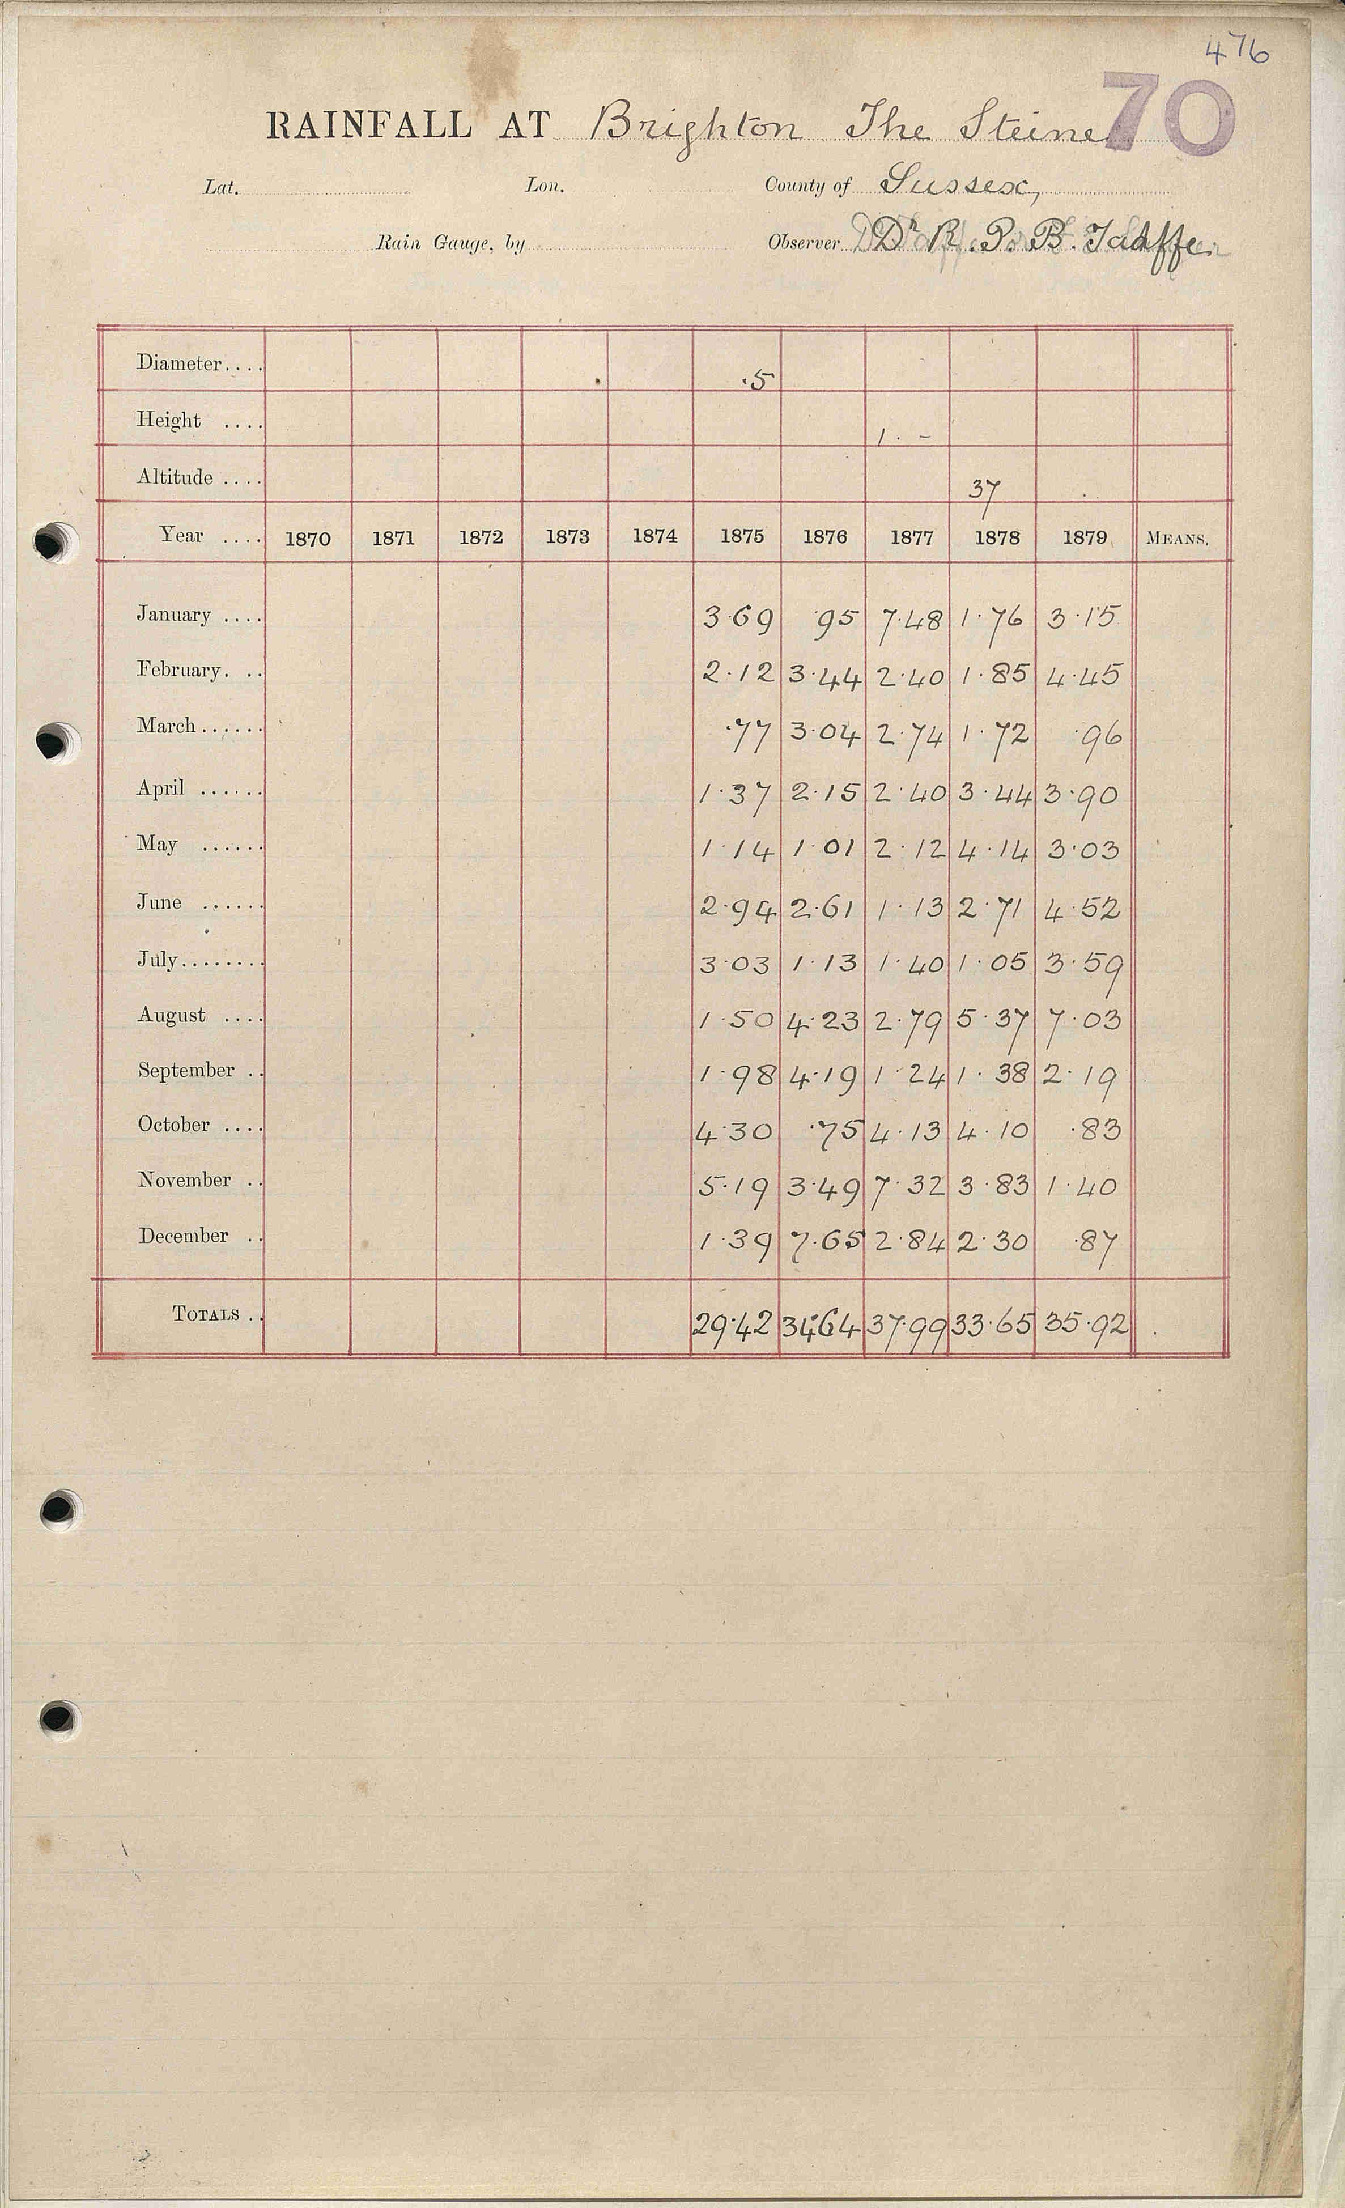 476
70
RAINFALL AT Brighton The Steine
Lat. Lon. County of Sussex,
Rain Gauge, by Observer Dr R. P. B. Taaffe.
Diameter.... .5
Height .... 1. -
Altitude .... 37
Year .... 1870 1871 1872 1873 1874 1875 1876 1877 1878 1879 MEANS.
January .... 3.69 .95 7.48 1.76 3.15
February. .. 2.12 3.44 2.40 1.85 4.45
March...... .77 3.04 2.74 1.72 .96
April ...... 1.37 2.15 2.40 3.44 3.90
May ...... 1.14 1.01 2.12 4.14 3.03
June ...... 2.94 2.61 1.13 2.71 4.52
July........ 3.03 1.13 1.40 1.05 3.59
August .... 1.50 4.23 2.79 5.37 7.03
September .. 1.98 4.19 1.24 1.38 2.19
October .... 4.30 .75 4.13 4.10 .83
November .. 5.19 3.49 7.32 3.83 1.40
December .. 1.39 7.65 2.84 2.30 .87
TOTALS .. 29.42 34.64 37.99 33.65 35.92